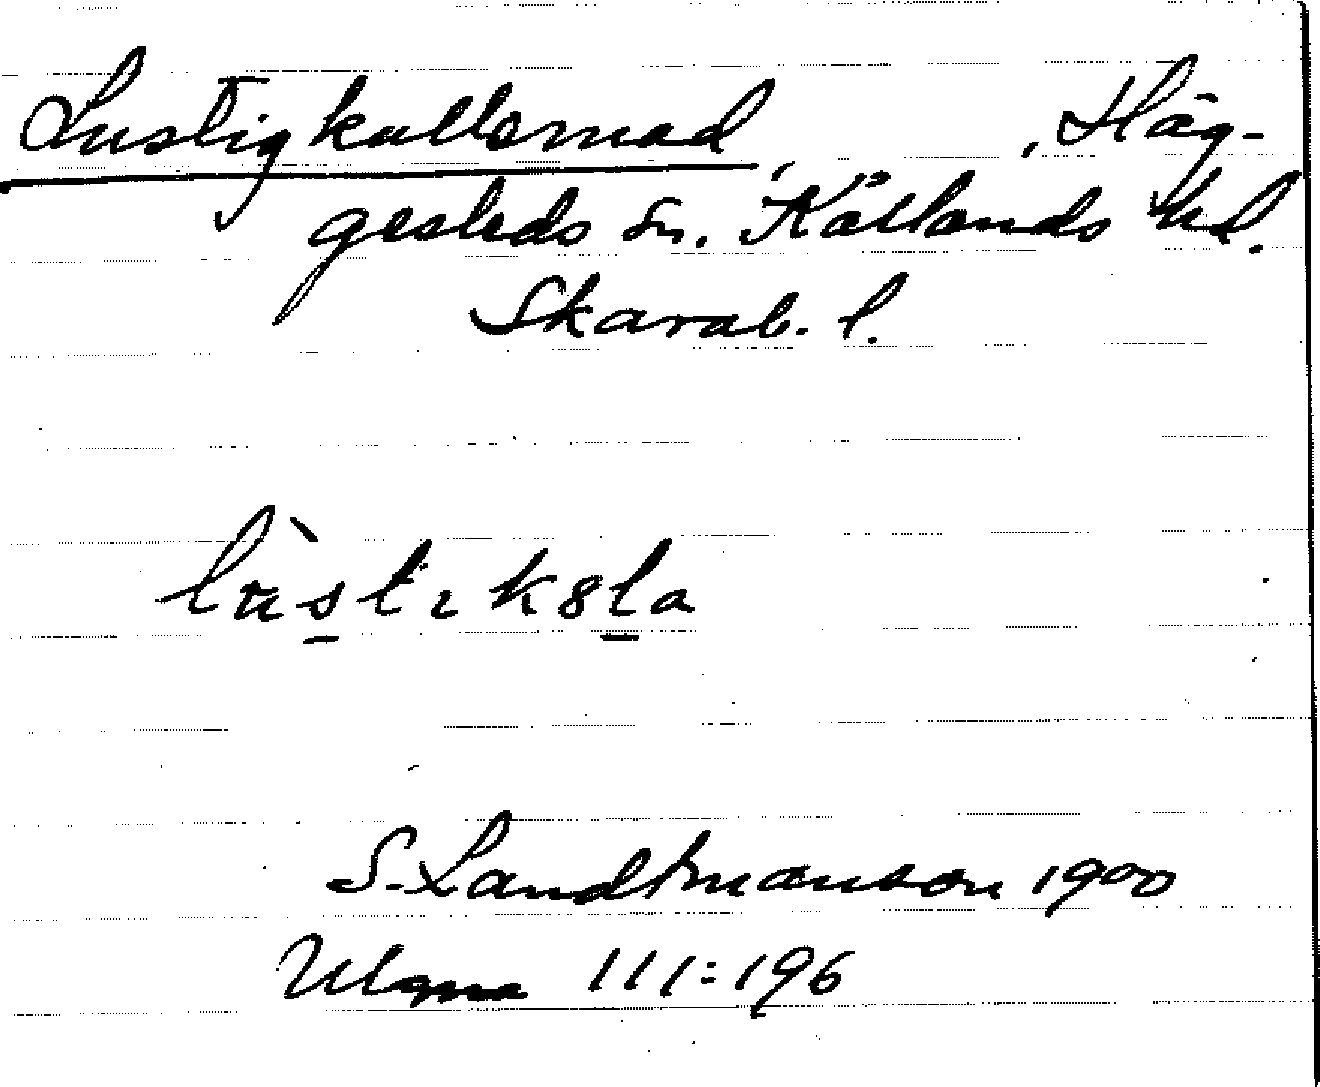 Lustigkullsmad, Häg-
gesleds sn. Kållands hd.
Skarab. l.
S. Landtmanson 1900
Ulma 111:196